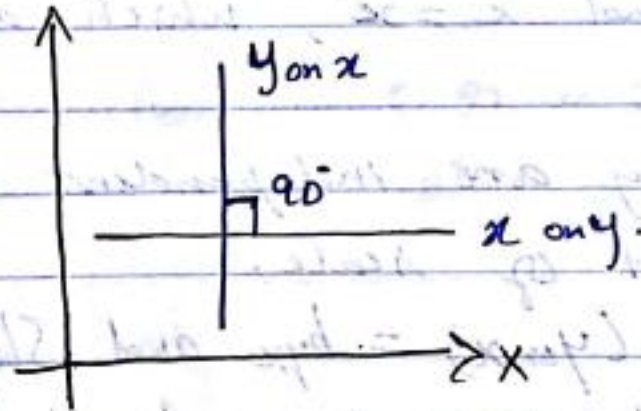 y on x
90°
x on y.
X